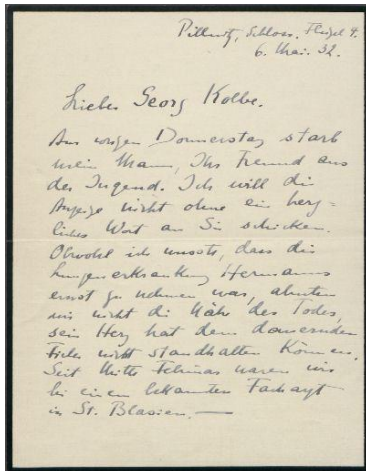 Pillnitz, Schloss. Flügel 9.
6. Mai. 32.
Lieber Georg Kolbe.
Am vorigen Donnerstag starb
mein Mann, Ihr Freund aus
der Jugend. Ich will die
Anzeige nicht ohne ein herz=
liches Wort an Sie schicken.
Obwohl ich wusste, dass die
Lungenerkrankung Hermanns
ernst zu nehmen war, ahnten
wir nicht die Nähe des Todes,
sein Herz hat dem dauernden
Fieber nicht standhalten können.
Seit Mitte Februar waren wir
bei einem bekannten Facharzt
in St. Blasien. —